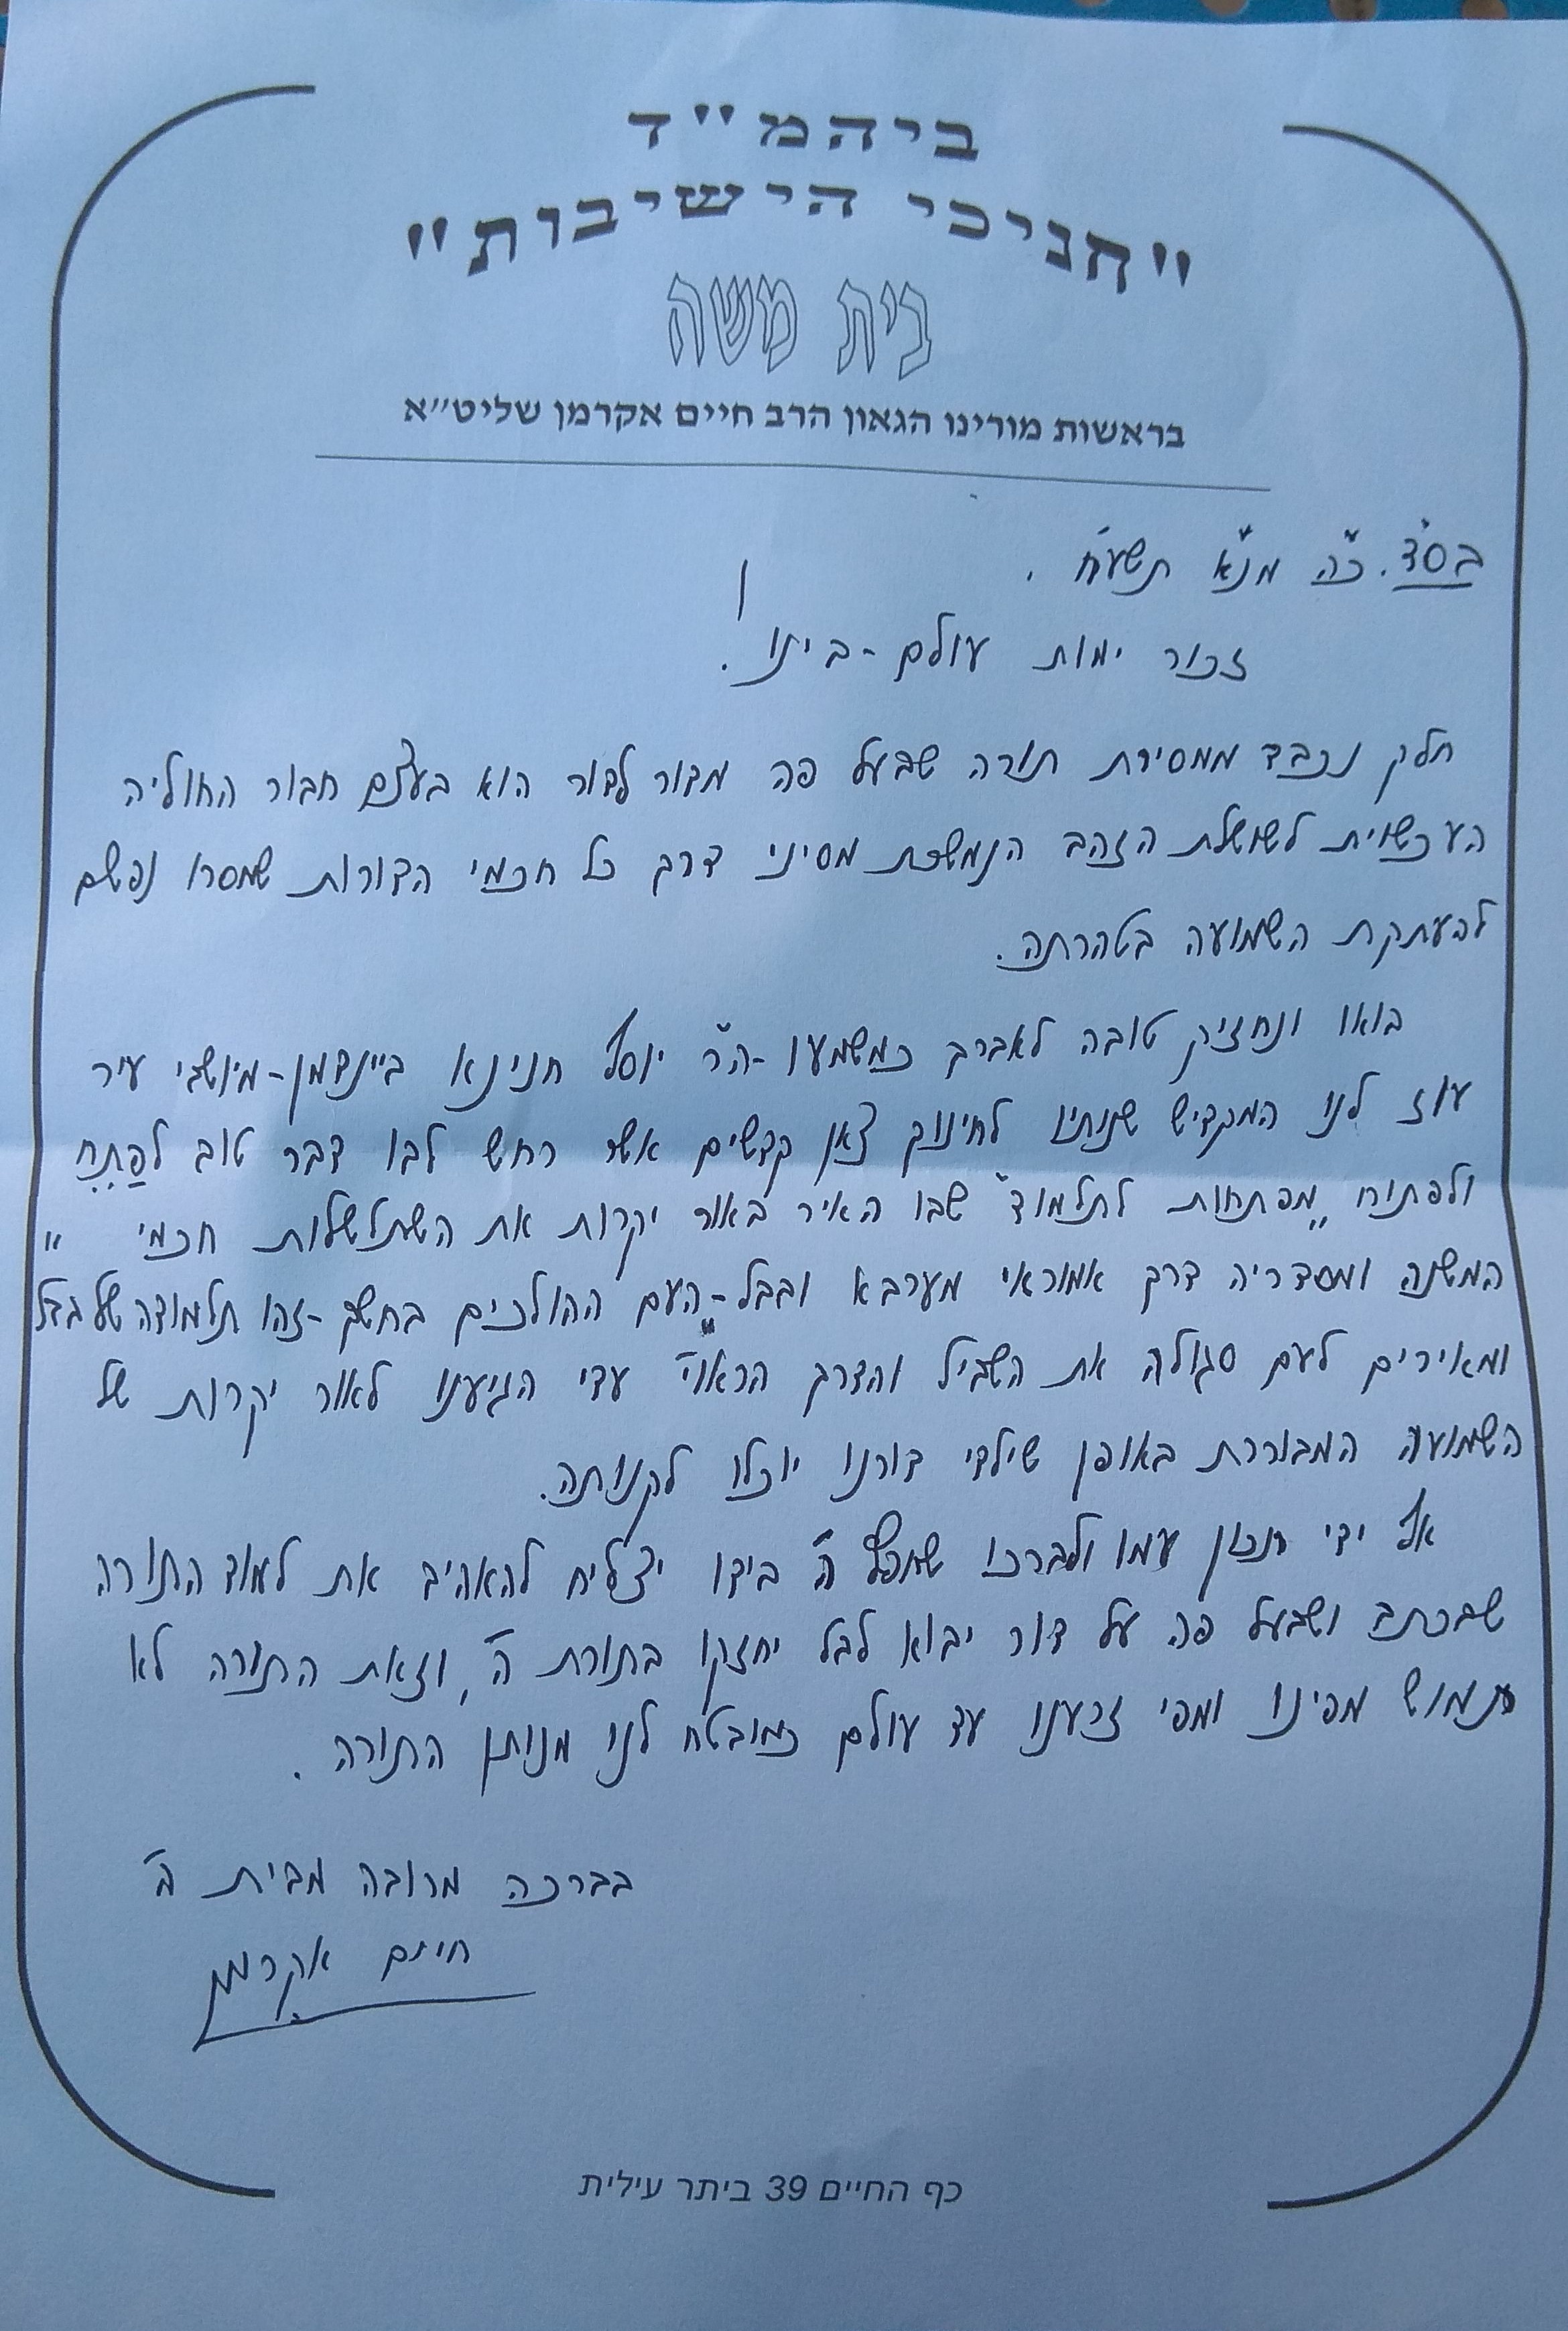 ביהמ"ד
"חניכי הישיבות"
בית משה
בראשות מורינו הגאון הרב חיים אקרמן שליט"א
בס"ד. כ"ה מנ"א תשע"ח.
זכור ימות עולם - בינו.
חלק נכבד ממסירת תורה שבעל פה מדור לדור הוא בעצם חבור החוליה
העכשוית לשושלת הזהב הנמשכת מסיני דרך כל חכמי הדורות שמסרו נפשם
להעתקת השמועה בטהרתה.
בואו ונחזיק טובה לאברך כמשמעו - ה"ר יוסף חנינא ביינדמן - מיושבי עיר
עוז לנו המקדיש שנותיו לחינוך צאן קדשים אשר רחש לבו דבר טוב לפַתֵּחַ
ולפתוח "מפתחות לתלמוד" שבו האיר באור יקרות את השתלשלות חכמי
המשנה ומסדריה דרך אמוראי מערבא ובבל - "העם ההולכים בחשך - זהו תלמודה של בבל"
ומאירים לעם סגולה את השביל והדרך הראוי' עדי הגיענו לאור יקרות של
השמועה המבוררת באופן שילדי דורנו יוכלו לקנותה.
אף ידי תכון עמו ולברכו שחפץ ה' בידו יצליח להאהיב את למוד התורה
שבכתב ושבעל פה על דור יבוא לבל יחזקו בתורת ה', וזאת התורה לא
תמוש מפינו ומפי זרענו עד עולם כמובטח לנו מנותן התורה.
בברכה מרובה מבית ה'
חיים אקרמן
כף החיים 39 ביתר עילית